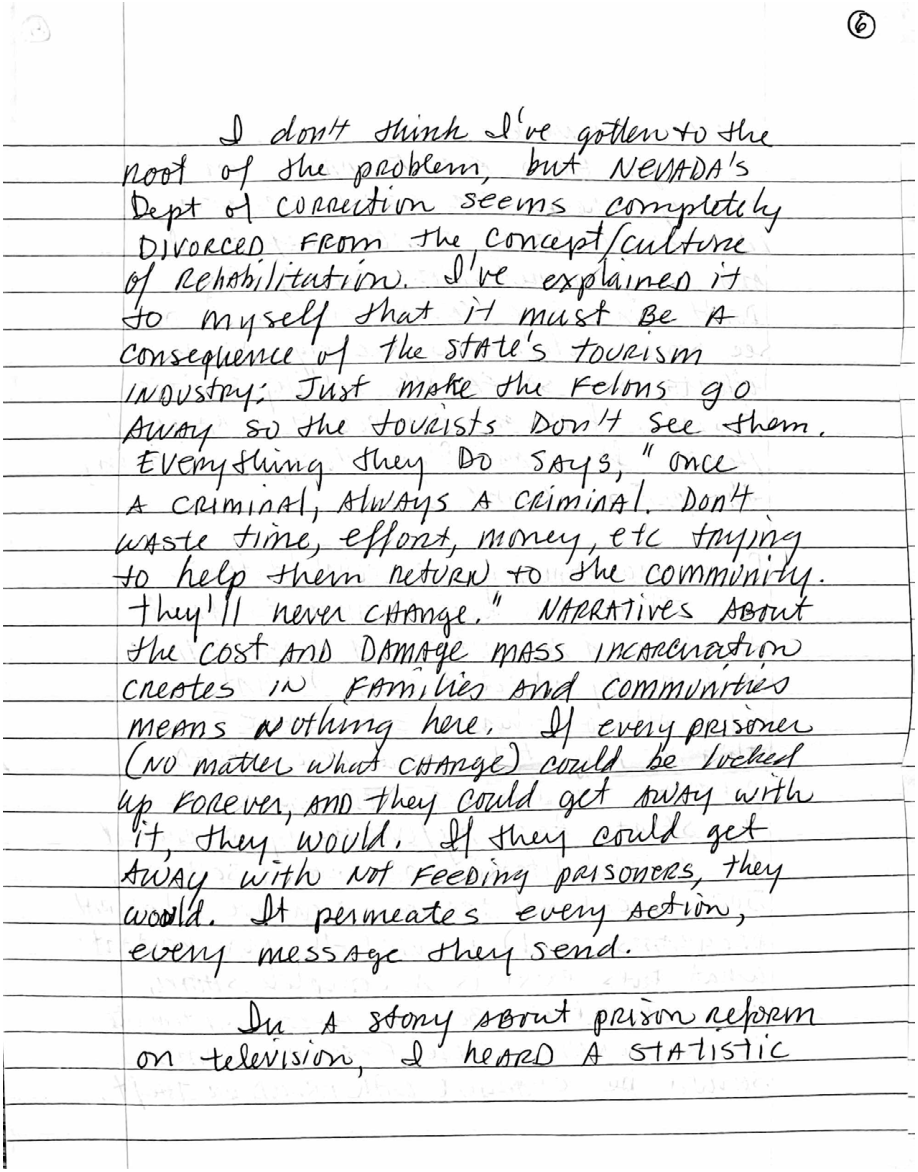 6
I don't think I've gotten to the
root of the problem, but NEVADA's
Dept of CORRECTION seems completely
DIVORCED FROM the concept/culture
of REHABILITATION. I've explained it
to myself that it must BE A
consequence of the STATE'S TOURISM
INDUSTRY: Just make the Felons go
AWAY so the tourists DON'T see them.
EVERYthing they DO SAYS, "once
A CRIMINAL, ALWAYS A CRIMINAL. Don't
WASTE time, effort, money, etc trying
to help them RETURN to the community.
They'll never CHANGE." NARRATIVES ABOUT
the cost AND DAMAGE MASS INCARCERATION
CREATES IN FAMILIES AND COMMUNITIES
MEANS Nothing here. If every PRISONER
(NO matter what CHANGE) could be locked
up FOREVER, AND they could get AWAY with
it, they would. If they could get
AWAY with NOT FEEDING PRISONERS, they
would. It permeates every Action,
every message they send.
In A story ABOUT prison reform
on television, I HEARD A STATISTIC